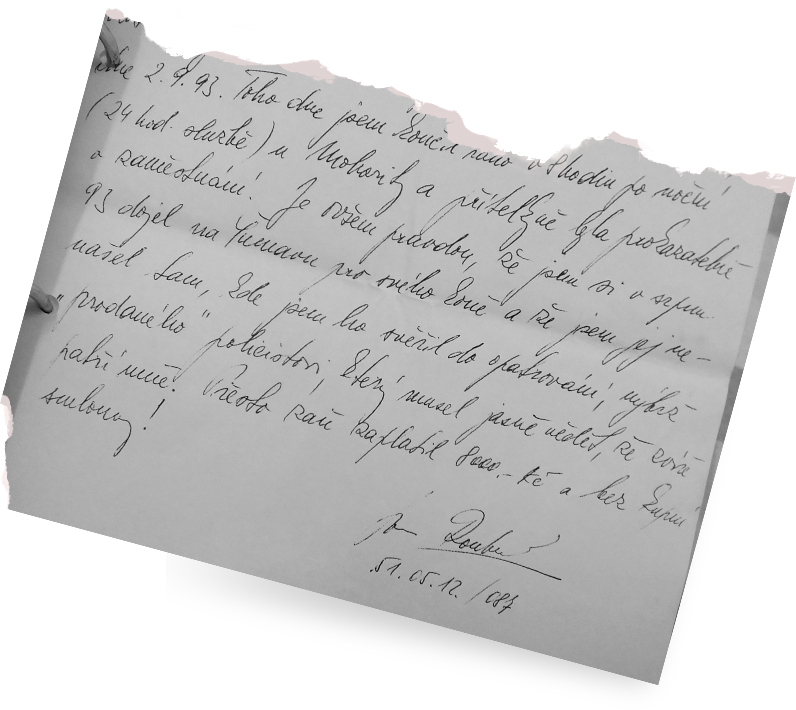 dne 2.9.93. Toho dne jsem končil ráno v 8 hodin po noční
(24 hod. službě) u Mohority a přítelkyně byla prokazatelně
v zaměstnání! Je ovšem pravdou, že jsem si v srpnu
93 dojel na Šumavu pro svého koně a že jsem jej ne-
našel tam, kde jsem ho svěřil do opatrování, nýbrž
"prodaného" policistovi, který musel jasně vědět, že zvíře
patří mně. Přesto zaň zaplatil 8000.- Kč a bez kupní
smlouvy!
51.05.12./087